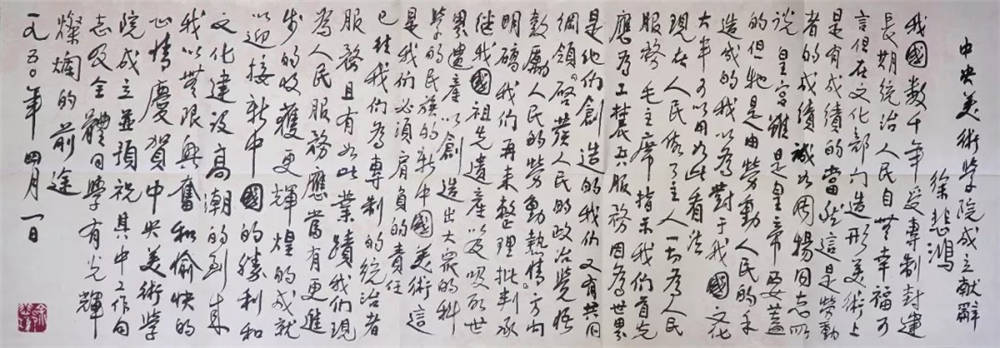 中央美術學院成立獻辭
徐悲鴻
我國數千年受專制封建
長期統治人民自無幸福可
言但在文化部門造形美術上
是有成績的當然這是勞動
者的成績誠如周揚同志所
說皇宮雖是皇帝要蓋
的但牠是由勞動人民的手
造成的我以為對于我國文化
大半可以用如此看法
現在人民做了主人一切為人民
服務毛主席指示我們首先
應為工農兵服務因為世界
是他們創造的我們又有共同
綱領啓發人民的政治覺悟
鼓勵人民的勞動熱情方向
明确我們再來整理批判承
繼我國祖先遺產以及吸取世
界遺產以創造出大衆的科
學的民族的新中國美術這
是我們必須肩負的責任
已往我們為專制的統治者
服務且有如此業蹟我們現
為人民服務應當有更進
步的收獲更輝煌的成就
以迎接新中國的勝利和
文化建设高潮的到來
我以無限興奮和愉快的
心情慶賀中央美術學
院成立並預祝其中工作同
志及全體同學有光輝
燦爛的前途
一九五〇年四月一日